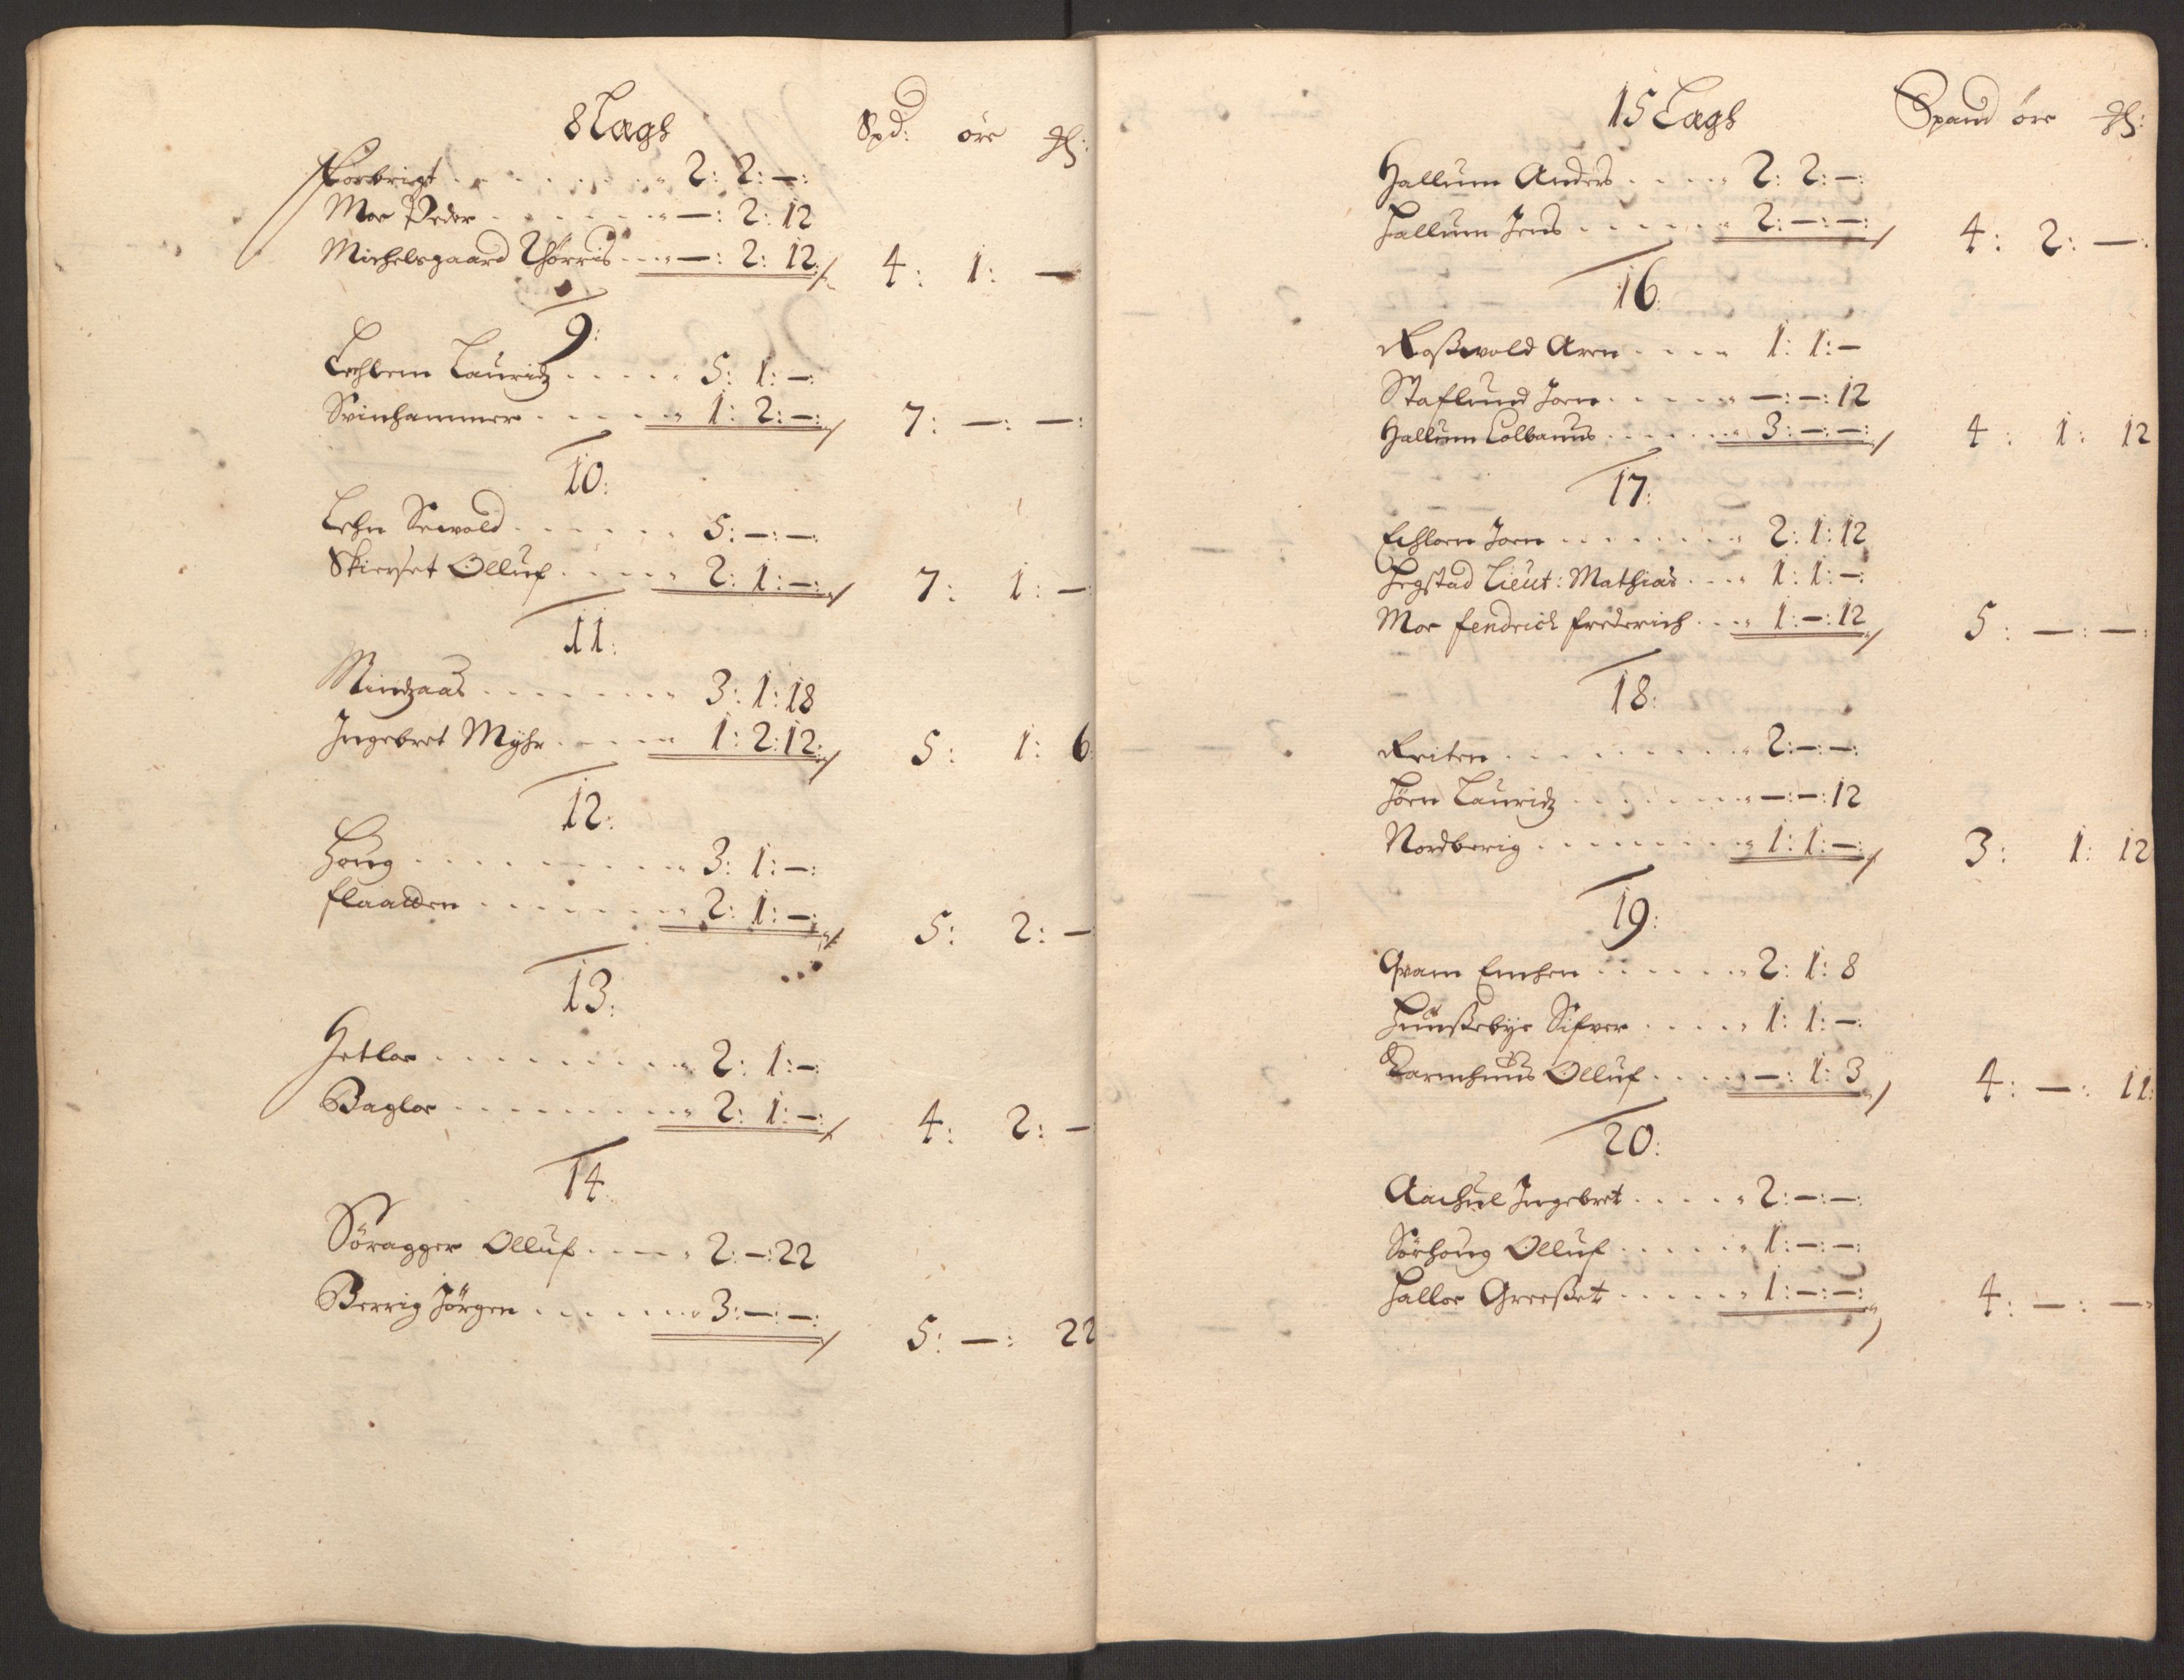 8 Lags Spd: öre
Forbrigt 2: 2: —:
Moe Peder —: 2: 12
Michelsgaard Thörris —: 2: 12 4: 1: —
9:
Lehlem Lauridz 5: 1: —:
Svinhammer 1: 2: —: 7: —: —:
10:
Lehn Sewold 5: —: —:
Skierset Olluf 2: 1: —: 7: 1: —
11:
Mindzaas 3: 1: 18
Ingebret Myhr 1: 2: 12: 5: 1: 6
12:
Houg 3: 1: —:
flaadden 2: 1: —: 5: 2: —
13:
Hetloe 2: 1: —:
Bagloe 2: 1: —: 4: 2: —
14
Söragger Olluf 2: —: 22
Berrig Jörgen 3: —: —: 5: —: 22
15 Lags Spand öre
Hallum Anders 2: 2: —:
Hallum Jens 2: —: —: 4: 2: —:
16:
Roßwold Aren 1: 1: —
Staflund Joen —: —: 12
Hallum Colbanus 3: —: —: 4: 1: 12
17:
Echloen Joen 2: 1: 12
Hegstad Lieut: Mathias 1: 1: —:
Moe fendrick frederich 1: —: 12 5: —: —:
18:
Reiten 2: —: —:
Hörn Lauridz —: —: 12
Nordberig 1: 1: —: 3: 1: 12
19:
Qvam Emhen 2: 1: 8
Hunßebye Sifver 1: 1: —:
Karmhuus Olluf —: 1: 3 4: —: 11:
20:
Aachul Ingebret 2: —: —:
Sörhoug Olluf 1: —: —:
Halloe Greeßet 1: —: —: 4: —: —